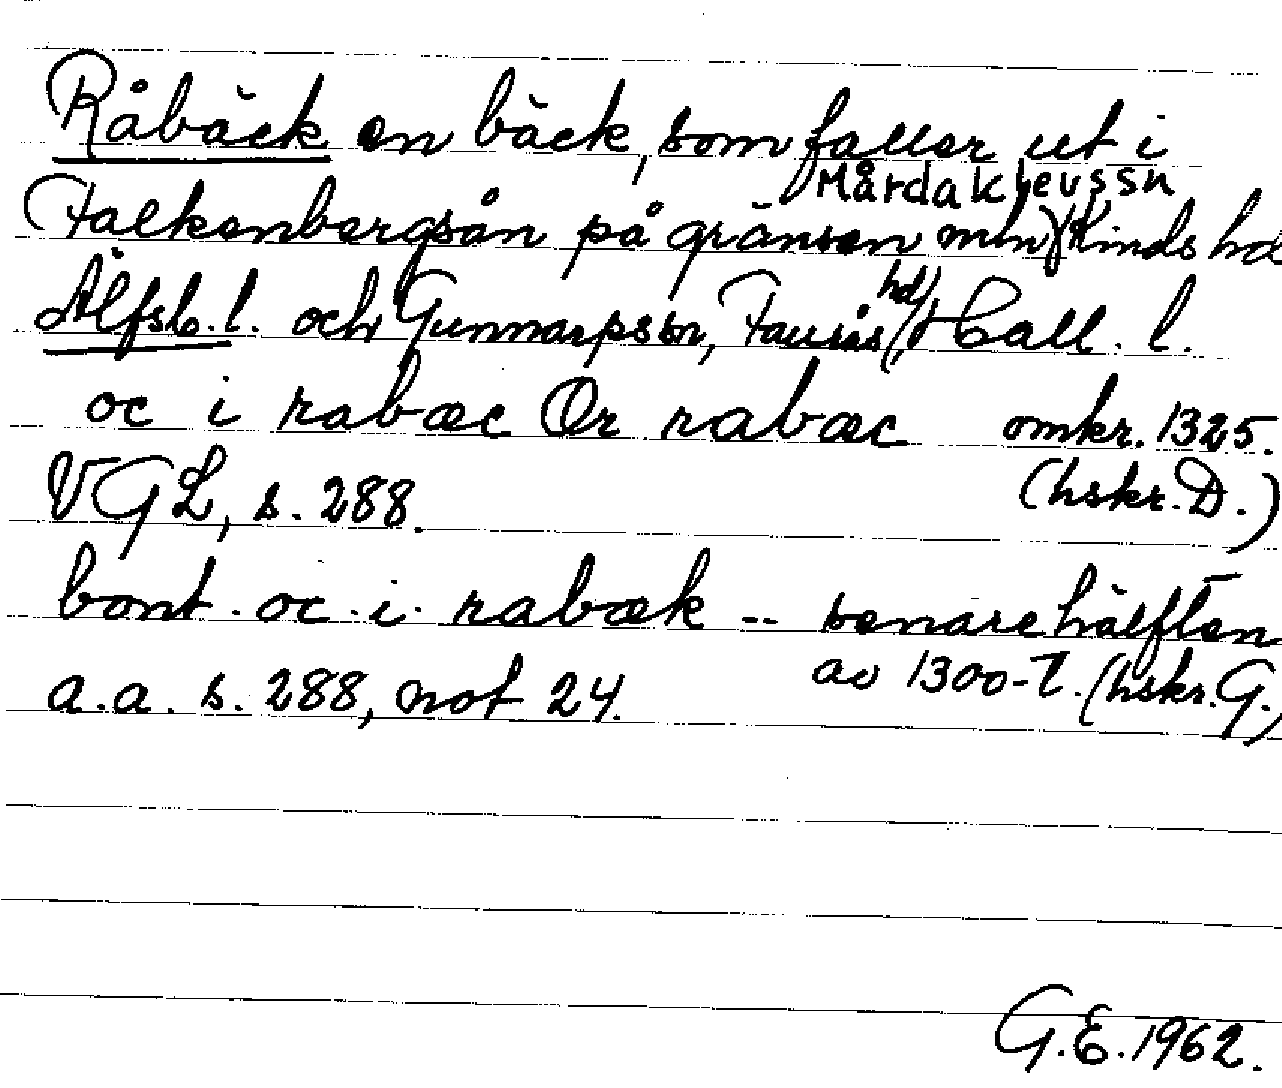 Råbäck en bäck, som faller ut i
Falkenbergsån på gränsen mln Mårdaklevssn Kinds hd
Älfsb. l. och Gunnarpssn, Faurås hd, Hall. l.
oc i rabæc Ør rabæc omkr. 1325.
VGL, s. 288. (hskr. D.)
bønt. oc. i. rabæk -- senare hälften
a.a. s. 288, not 24. av 1300-t. (hskr. G.)
G.E. 1962.